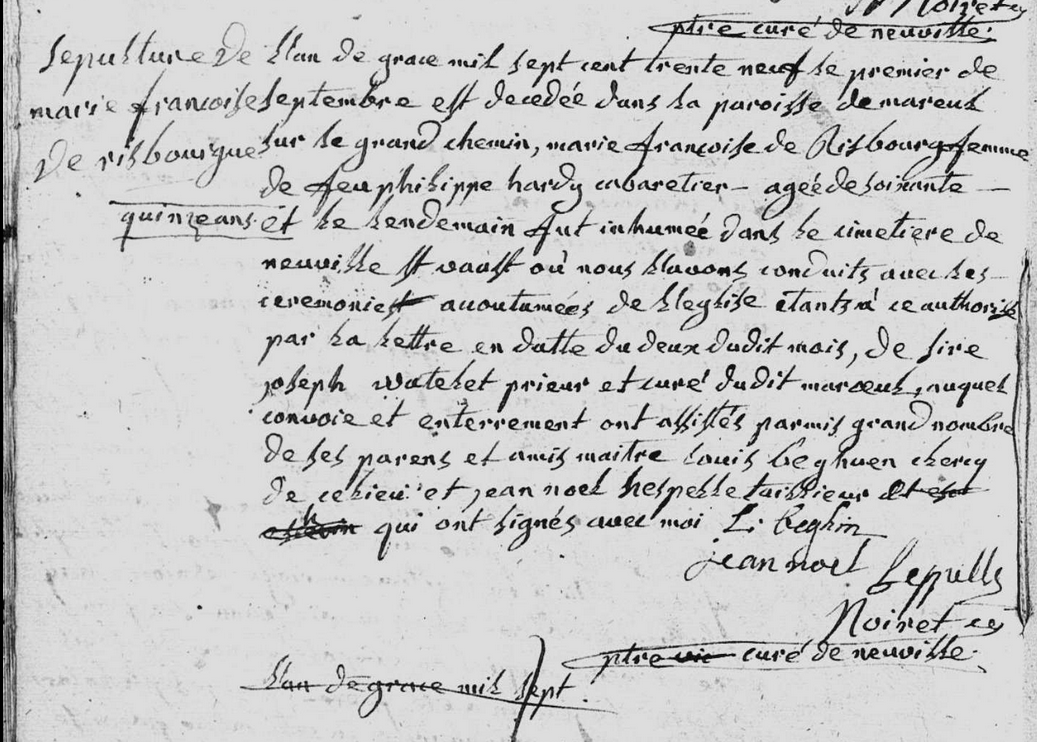 Noiret
ptre curé de neuville.
Sepulture de
marie francoise
de risbourgue
L'an de grace mil sept cent trente neuf le premier de
septembre est decedée dans la paroisse de mareul
sur le grand chemin, marie francoise de Risbourg femme
de feu philippe hardy cabaretier - ageé de soixante -
quinze ans. et le lendemain fut inhumeé dans le cimetiere de
neuville st vaast où nous l'avons conduits avec les
ceremonies acoutumées de l'eglise étants à ce authorisé
par la lettre en datte du deux dudit mois, de sire
joseph watelet prieur et curé dudit maroeul, auquel
convoie et enterrement ont assistés parmis grand nombre
de ses parens et amis maitre Louis Beghuen clercq
de ce lieu et jean noel lespelle taillieur et
qui ont signés avec moi L. Beghin
jean noel Lepills
Noiret
ptre vic curé de neuville.
L'an de grace mil sept